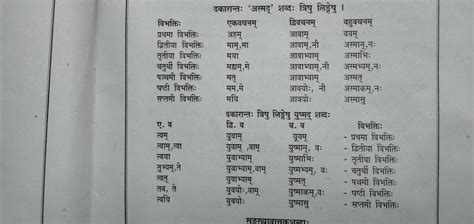 दकारान्तः 'अस्मद्' शब्दः त्रिषु लिङ्गेषु ।
विभक्तिः एकवचनम् द्विवचनम् बहुवचनम्
प्रथमा विभक्तिः अहम् आवाम् वयम्
द्वितीया विभक्तिः माम्,मा आवाम्,नौ अस्मान्,नः
तृतीया विभक्तिः मया आवाभ्याम् अस्माभिः
चतुर्थी विभक्तिः मह्यम्,मे आवाभ्याम्,नौ अस्मभ्यम्,नः
पञ्चमी विभक्तिः मत् आवाभ्याम् अस्मत्
षष्ठी विभक्तिः मम,मे आवयोः, नौ अस्माकम्,नः
सप्तमी विभक्तिः मयि आवयोः अस्मासु
दकारान्तः त्रिषु लिङ्गेषु युष्मद् शब्दः
ए. व द्वि. व ब. व विभक्तिः
त्वम् युवाम् यूयम् - प्रथमा विभक्तिः
त्वाम्,त्वा युवाम्,वाम् युष्मान्, वः - द्वितीया विभक्तिः
त्वया युवाभ्याम् युष्माभिः - तृतीया विभक्तिः
तुभ्यम्,ते युवाभ्याम्,वाम् युष्मभ्यम्, वः - चतुर्थी विभक्तिः
त्वत् युवाभ्याम् युष्मत् - पञ्चमी विभक्तिः
तव, ते युवयोः,वाम् युष्माकम्,वः - षष्ठी विभक्तिः
त्वयि युवयोः युष्मासु - सप्तमी विभक्तिः